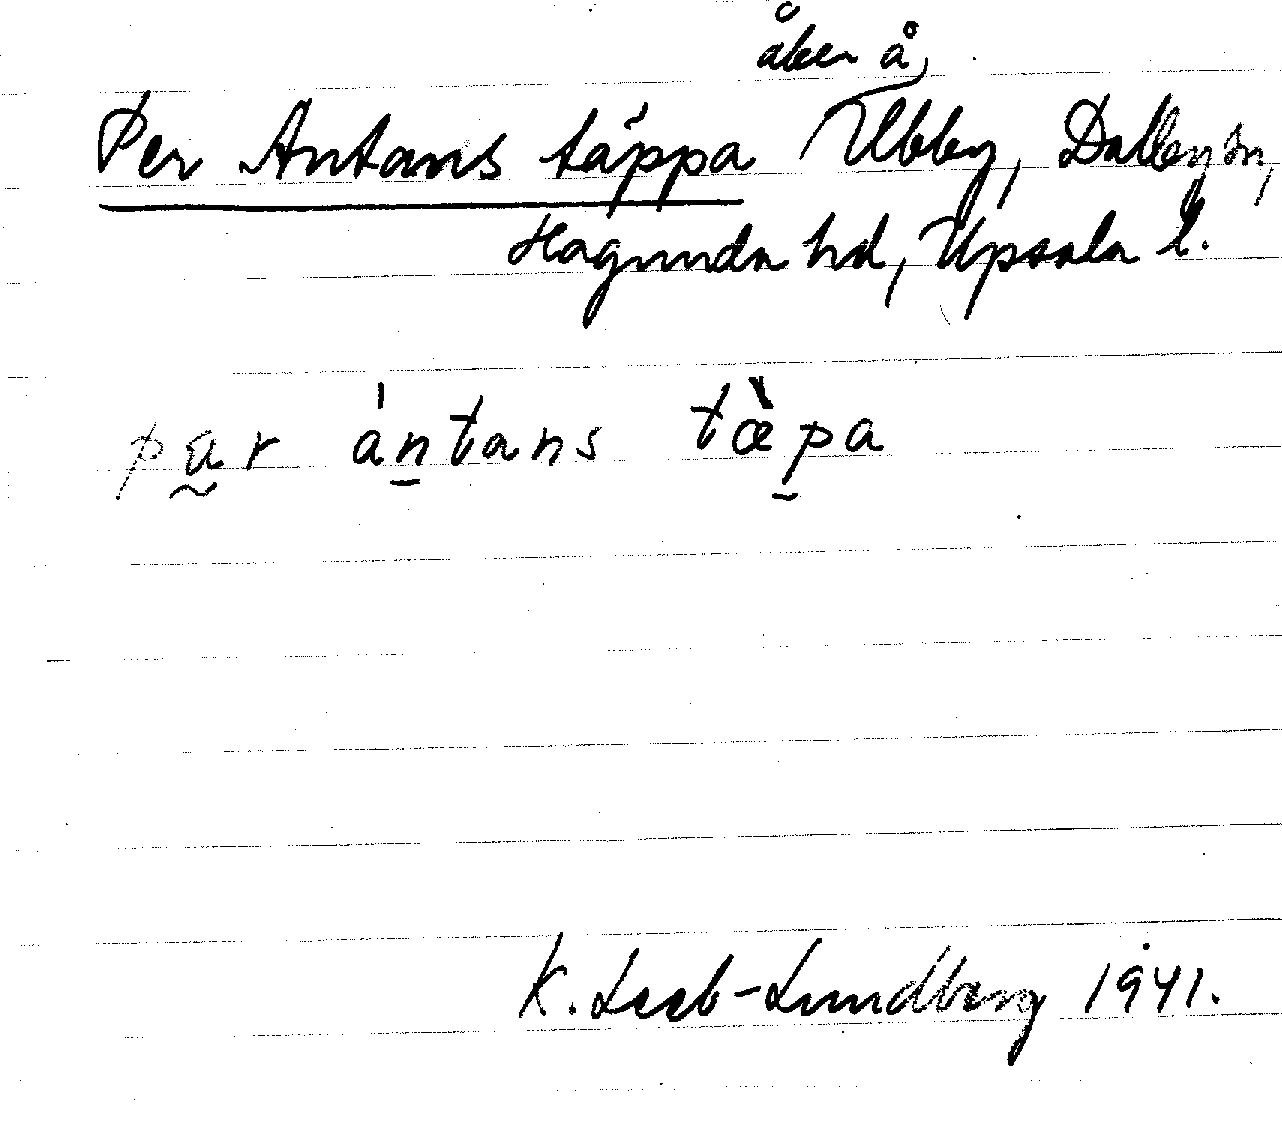 åker å
Per Antans täppa Ubby, Dalby sn,
Hagunda hd, Upsala l.
pa̰r ántans tæ̀pa
K. Leeb-Lundberg 1941.